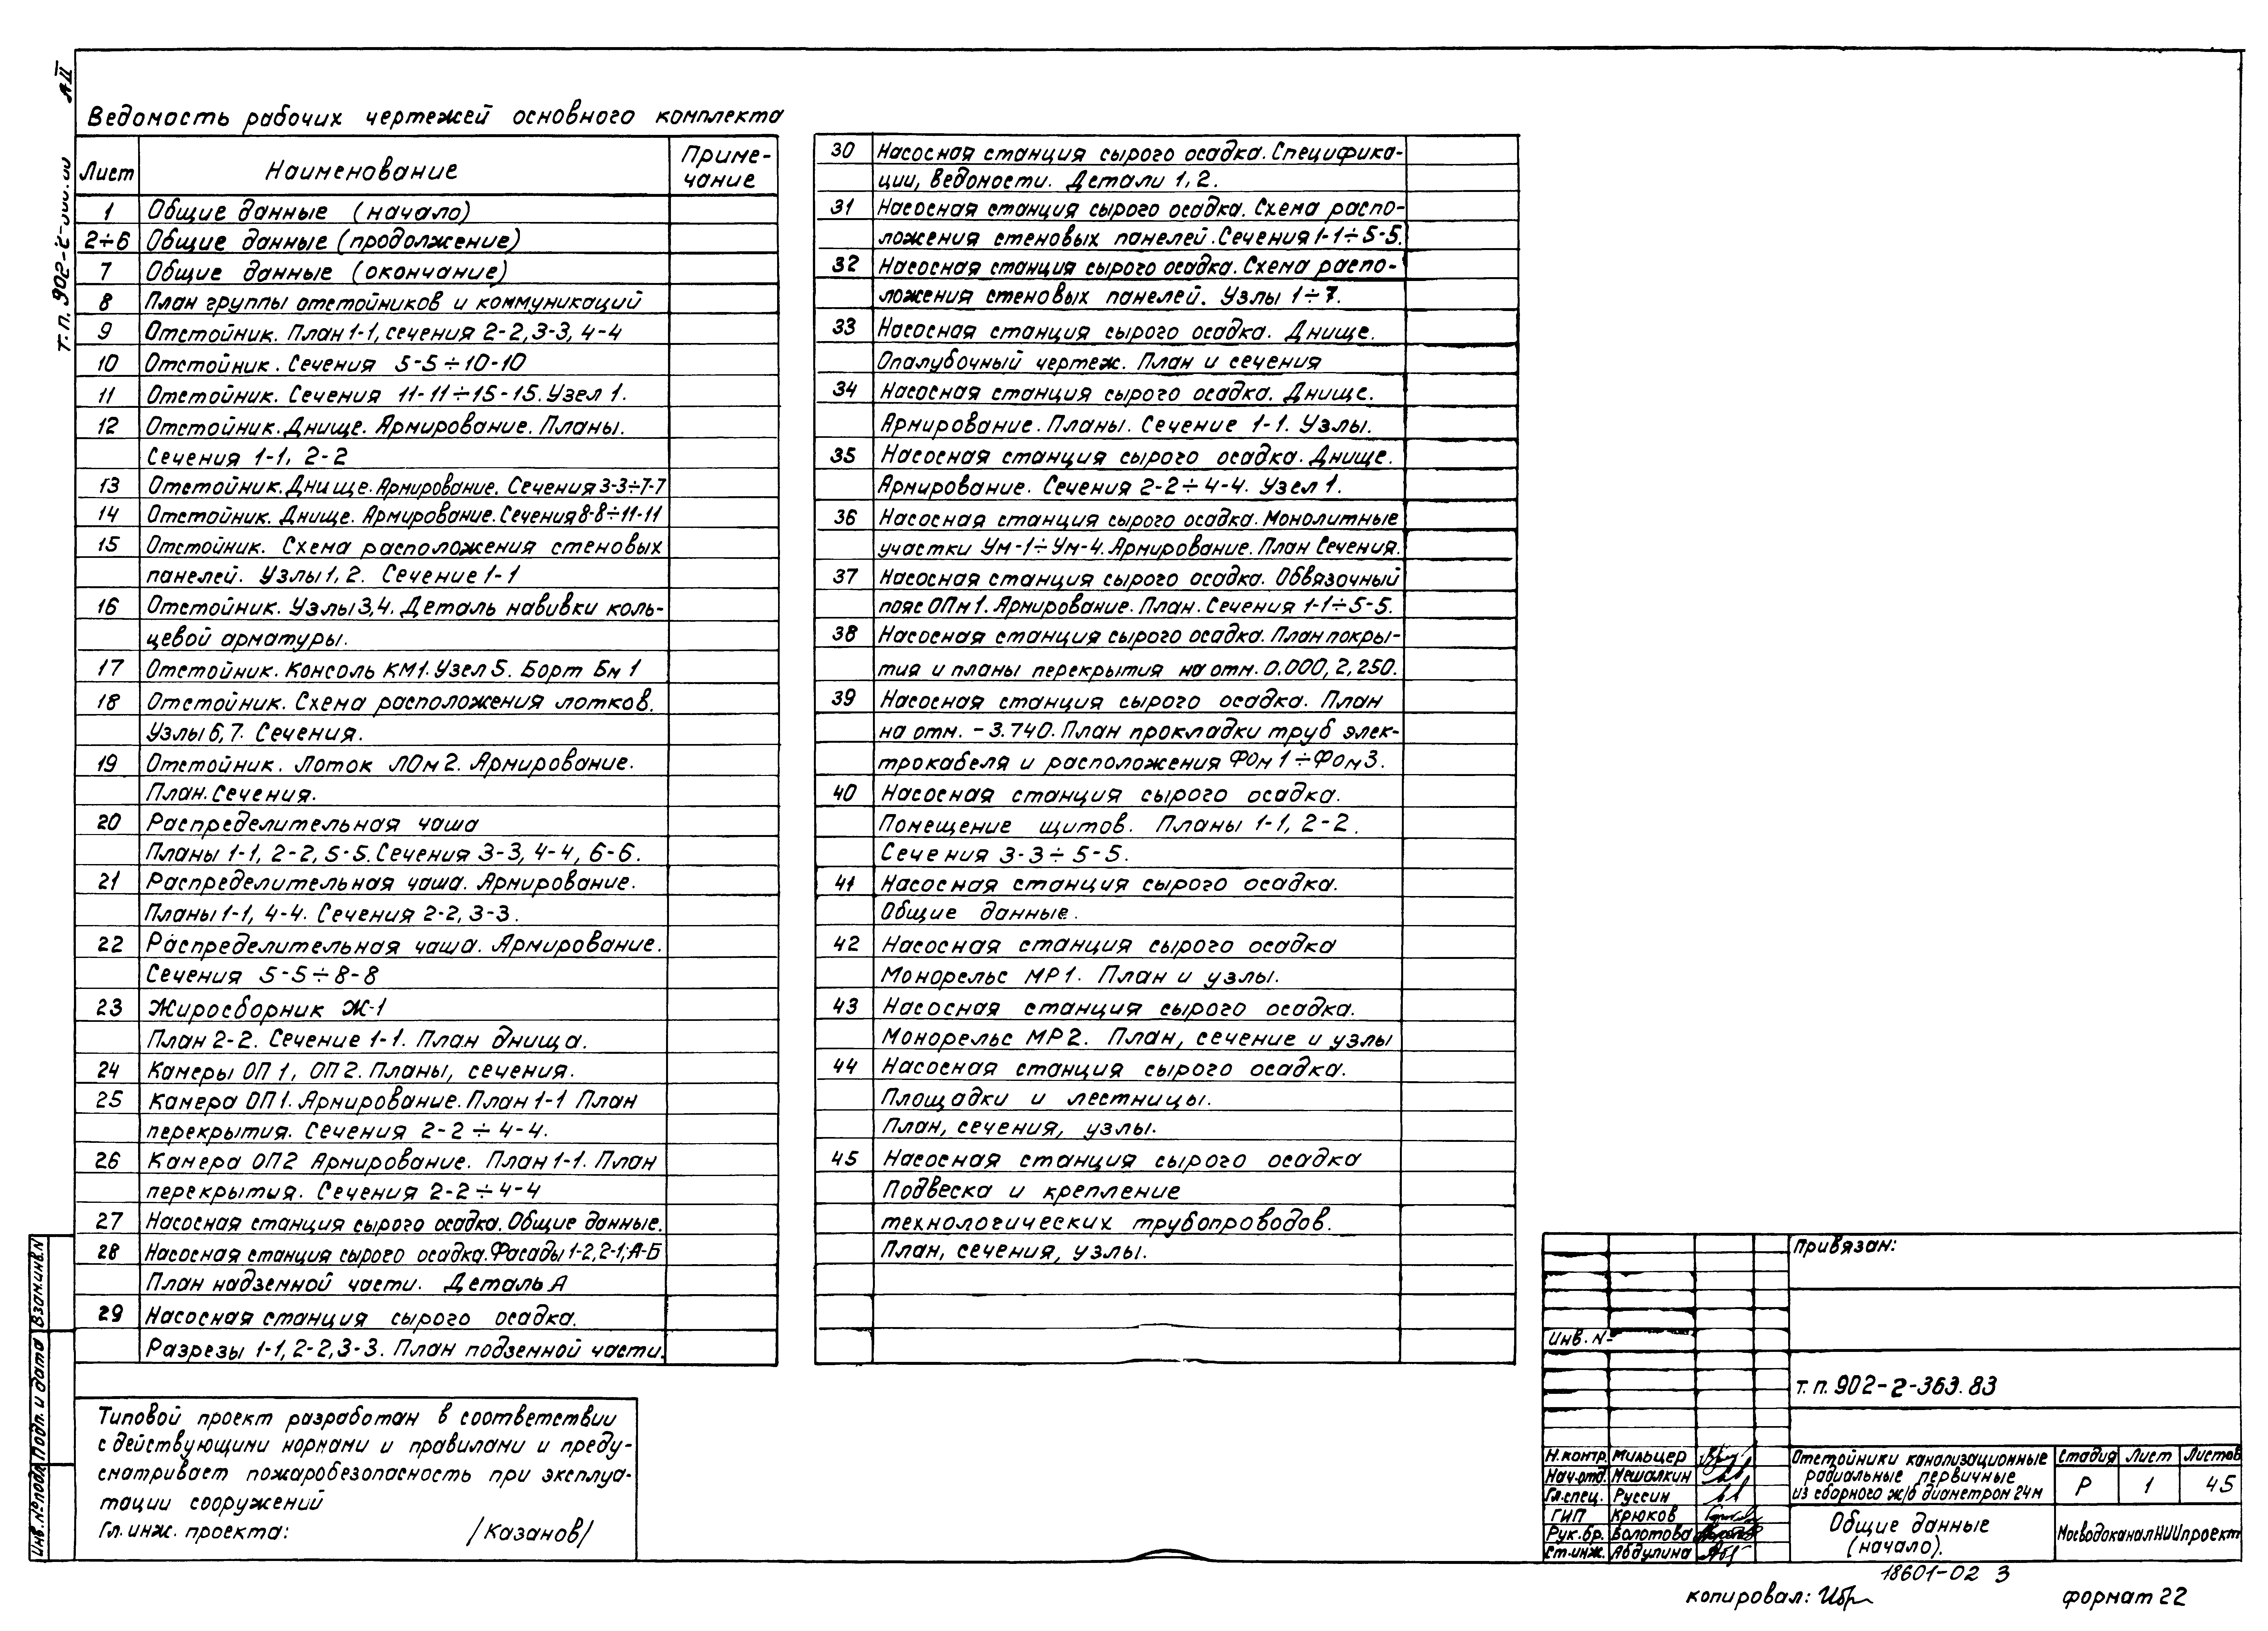 А II
Ведомость рабочих чертежей основного комплекта
Лист Наименование Приме-
чание
1 Общие данные (начало)
2÷6 Общие данные (продолжение)
7 Общие данные (окончание)
8 План группы отстойников и коммуникаций
9 Отстойник. План 1-1, сечения 2-2, 3-3, 4-4
10 Отстойник. Сечения 5-5÷10-10
11 Отстойник. Сечения 11-11÷15-15. Узел 1.
12 Отстойник. Днище. Армирование. Планы.
Сечения 1-1, 2-2
13 Отстойник. Днище. Армирование. Сечения 3-3÷7-7
14 Отстойник. Днище. Армирование. Сечения 8-8÷11-11
15 Отстойник. Схема расположения стеновых
панелей. Узлы 1, 2. Сечение 1-1
16 Отстойник. Узлы 3,4. Деталь навивки коль-
цевой арматуры.
17 Отстойник. Консоль КМ1. Узел 5. Борт Бм 1
18 Отстойник. Схема расположения лотков.
Узлы 6,7. Сечения.
19 Отстойник. Лоток ЛОм 2. Армирование.
План. Сечения.
20 Распределительная чаша
Планы 1-1, 2-2, 5-5. Сечения 3-3, 4-4, 6-6.
21 Распределительная чаша. Армирование.
Планы 1-1, 4-4. Сечения 2-2, 3-3.
22 Распределительная чаша. Армирование.
Сечения 5-5÷8-8
23 Жиросборник Ж-1
План 2-2. Сечение 1-1. План днища.
24 Камеры ОП 1, ОП 2. Планы, сечения.
25 Камера ОП1. Армирование. План 1-1 План
перекрытия. Сечения 2-2÷4-4.
26 Камера ОП2 Армирование. План 1-1. План
перекрытия. Сечения 2-2÷4-4
27 Насосная станция сырого осадка. Общие данные.
28 Насосная станция сырого осадка. Фасады 1-2, 2-1; А-Б
План надземной части. Деталь А
29 Насосная станция сырого осадка.
Разрезы 1-1, 2-2, 3-3. План подземной части.
30 Насосная станция сырого осадка. Специфика-
ции, ведомости. Детали 1, 2.
31 Насосная станция сырого осадка. Схема распо-
ложения стеновых панелей. Сечения 1-1÷5-5.
32 Насосная станция сырого осадка. Схема распо-
ложения стеновых панелей. Узлы 1÷7.
33 Насосная станция сырого осадка. Днище.
Опалубочный чертеж. План и сечения
34 Насосная станция сырого осадка. Днище.
Армирование. Планы. Сечение 1-1. Узлы.
35 Насосная станция сырого осадка. Днище.
Армирование. Сечения 2-2÷4-4. Узел 1.
36 Насосная станция сырого осадка. Монолитные
участки Ум-1÷Ум-4. Армирование. План Сечения.
37 Насосная станция сырого осадка. Обвязочный
пояс ОПм 1. Армирование. План. Сечения 1-1÷5-5.
38 Насосная станция сырого осадка. План покры-
тия и планы перекрытия на отм. 0.000, 2,250.
39 Насосная станция сырого осадка. План
на отм. -3.740. План прокладки труб элек-
трокабеля и расположения ФОм 1÷Фом 3.
40 Насосная станция сырого осадка.
Помещение щитов. Планы 1-1, 2-2.
Сечения 3-3÷5-5.
41 Насосная станция сырого осадка.
Общие данные.
42 Насосная станция сырого осадка
Монорельс МР1. План и узлы.
43 Насосная станция сырого осадка.
Монорельс МР2. План, сечение и узлы
44 Насосная станция сырого осадка.
Площадки и лестницы.
План, сечения, узлы.
45 Насосная станция сырого осадка
Подвеска и крепление
технологических трубопроводов.
План, сечения, узлы.
Типовой проект разработан в соответствии
с действующими нормами и правилами и преду-
сматривает пожаробезопасность при эксплуа-
тации сооружений
Гл. инж. проекта: /Казанов/
Инв. № подл. Подп. и дата Взам. инв. N
Привязан:
Инв. N
т.п. 902-2-363.83
Н.контр. Мильцер
Нач.отд. Мешалкин
Гл.спец. Руссин
ГИП Крюков
Рук.бр. Болотова
Ст.инж. Абдулина
Отстойники канализационные
радиальные первичные
из сборного ж/б диаметром 24м
Стадия Лист Листов
Р 1 45
Общие данные
(начало).
МосводоканалНИИпроект
18601-02 3
копировал:
формат 22